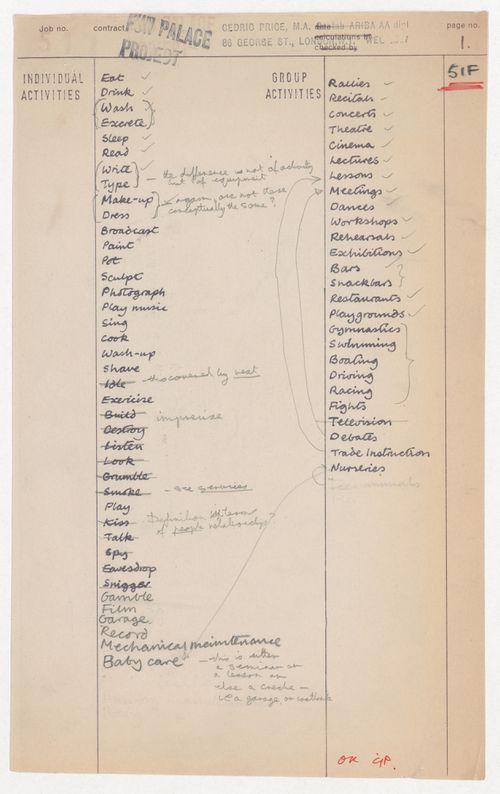 Job no.
contract
FUN PALACE
PROJECT
CEDRIC PRICE, M.A. ARIBA AA dipl
calculations by
86 GEORGE ST., LONDON
checked by
WEL
page no.
1.
51F
INDIVIDUAL
ACTIVITIES
Eat
Drink
Wash
Excrete
Sleep
Read
Write
Type
— the difference is not of activity
but of equipment
Make-up
Dress
again, are not these
conceptually the same?
Broadcast
Paint
Pot
Sculpt
Photograph
Play music
Sing
Cook
Wash-up
Shave
Idle
— covered by rest
Exercise
Build
imprecise
Destroy
Listen
Look
Grumble
Smoke
— see services
Play
Kiss
Definition
of people relationship?
Talk
Spy
Eavesdrop
Snigger
Gamble
Film
Garage
Record
Mechanical maintenance
Baby care
— this is either
a seminar or
a lesson or
else a creche —
i.e. a garage, or
GROUP
ACTIVITIES
Rallies
Recitals
Concerts
Theatre
Cinema
Lectures
Lessons
Meetings
Dances
Workshops
Rehearsals
Exhibitions
Bars
Snackbars
Restaurants
Playgrounds
Gymnastics
Swimming
Boating
Driving
Racing
Fights
Television
Debates
Trade Instruction
Nurseries
OK CP.